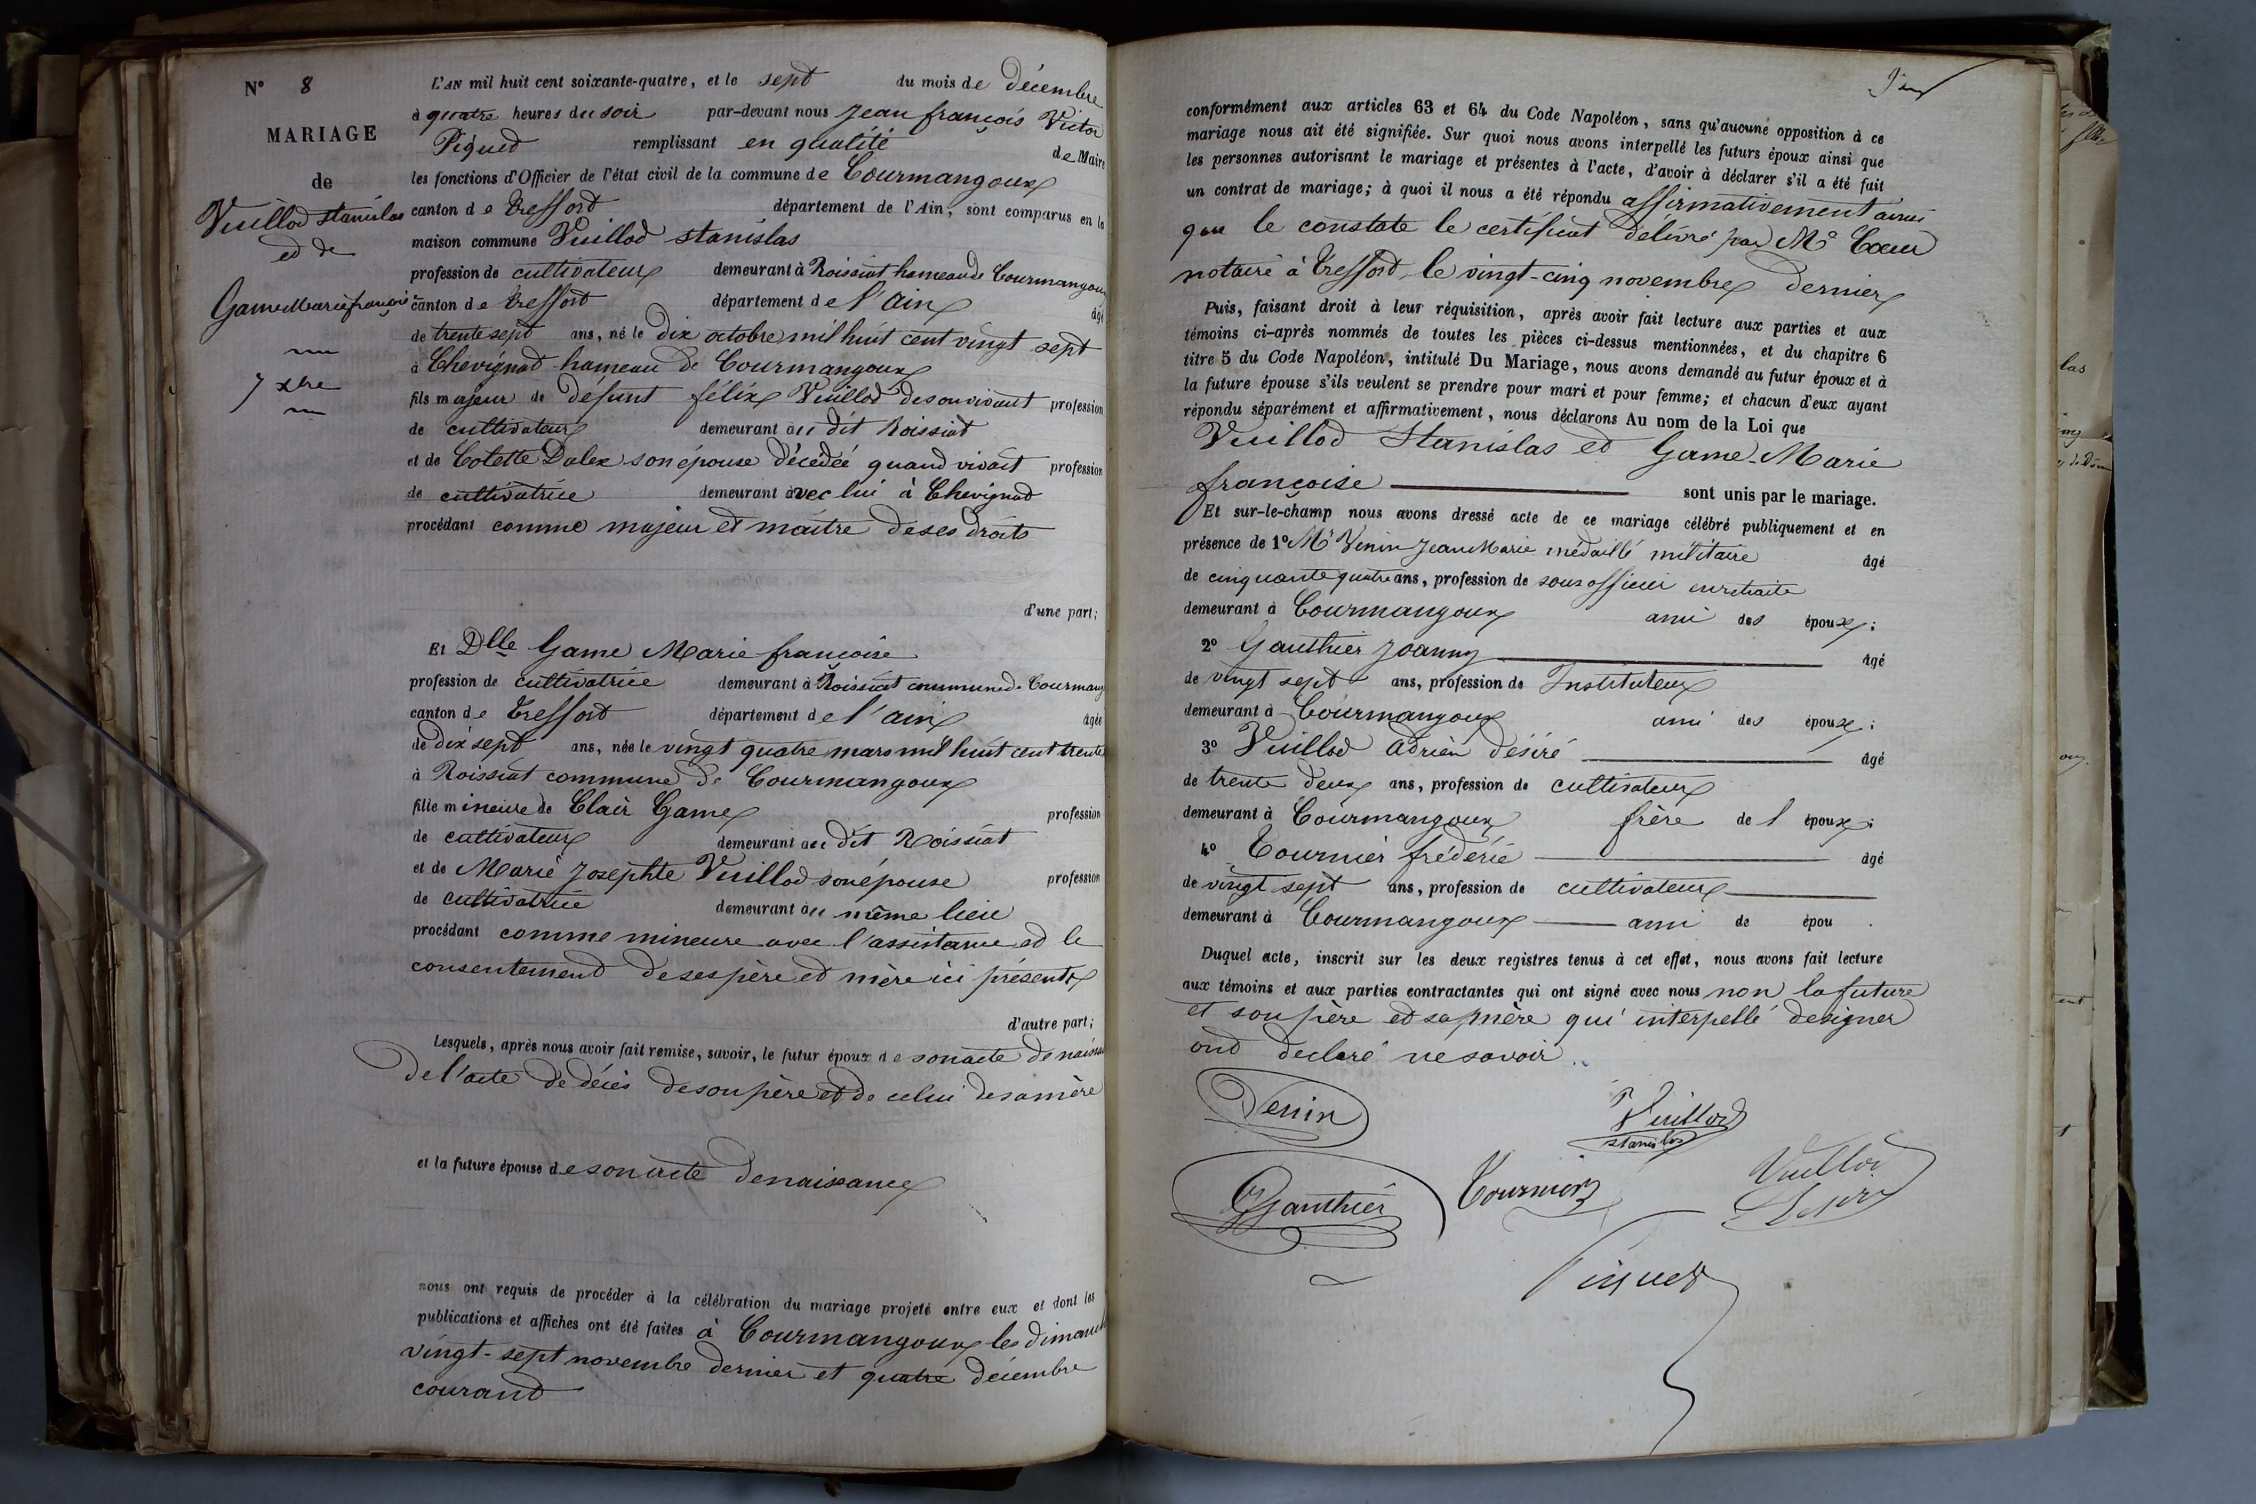 N° 8
MARIAGE
de
Vuillod Stanislas
et de
Game Marie françoise
7 xbre
L'AN mil huit cent soixante-quatre, et le sept du mois de décembre
à quatre heures du soir par-devant nous Jean françois Victor
Piquet remplissant en qualité de Maire
les fonctions d'Officier de l'état civil de la commune de Courmangoux
canton de Treffort département de l'Ain, sont comparus en la
maison commune Vuillod stanislas
profession de cultivateur demeurant à Roissiat hameau de Courmangoux
canton de Treffort département de l'ain âgé
de trente sept ans, né le dix octobre mil huit cent vingt sept
à Chevignat hameau de Courmangoux
fils majeur de défunt félix Vuillod de son vivant profession
de cultivateur demeurant au dit Roissiat
et de Colette Dalex son épouse décédée quand vivait profession
de cultivatrice demeurant avec lui à Chevignat
procédant comme majeur et maître de ses droits
d'une part;
Et Dlle Game Marie françoise
profession de cultivatrice demeurant à Roissiat commune de Courmang
canton de Treffort département de l'ain âgée
de dix sept ans, née le vingt quatre mars mil huit cent trente
à Roissiat commune de Courmangoux
fille mineure de Clair Game profession
de cultivateur demeurant au dit Roissiat
et de Marie Josephte Vuillod son épouse profession
de cultivatrice demeurant au même lieu
procédant comme mineure avec l'assistance et le
consentement de ses père et mère ici présents
d'autre part;
Lesquels, après nous avoir fait remise, savoir, le futur époux de son acte de naissa
de l'acte de décès de son père et de celui de sa mère
et la future épouse de son acte de naissance
nous ont requis de procéder à la célébration du mariage projeté entre eux et dont les
publications et affiches ont été faites à Courmangoux les dimanch
vingt-sept novembre dernier et quatre décembre
courant
conformément aux articles 63 et 64 du Code Napoléon, sans qu'aucune opposition à ce
mariage nous ait été signifiée. Sur quoi nous avons interpellé les futurs époux ainsi que
les personnes autorisant le mariage et présentes à l'acte, d'avoir à déclarer s'il a été fait
un contrat de mariage; à quoi il nous a été répondu affirmativement ainsi
que le constate le certificat délivré par Me Cœur
notaire à Treffort, le vingt-cinq novembre dernier
Puis, faisant droit à leur réquisition, après avoir fait lecture aux parties et aux
témoins ci-après nommés de toutes les pièces ci-dessus mentionnées, et du chapitre 6
titre 5 du Code Napoléon, intitulé Du Mariage, nous avons demandé au futur époux et à
la future épouse s'ils veulent se prendre pour mari et pour femme; et chacun d'eux ayant
répondu séparément et affirmativement, nous déclarons Au nom de la Loi que
Vuillod Stanislas et Game Marie
françoise sont unis par le mariage.
Et sur-le-champ nous avons dressé acte de ce mariage célébré publiquement et en
présence de 1° Mr Venin Jean Marie médaillé militaire âgé
de cinquante quatre ans, profession de sous officier en retraite
demeurant à Courmangoux ami des époux;
2° Gauthier Joanny âgé
de vingt sept ans, profession de Instituteur
demeurant à Courmangoux ami des époux;
3° Vuillod adrien désiré âgé
de trente deux ans, profession de cultivateur
demeurant à Courmangoux frère de l époux;
4° Tournier frédéric âgé
de vingt sept ans, profession de cultivateur
demeurant à Courmangoux ami de épou .
Duquel acte, inscrit sur les deux registres tenus à cet effet, nous avons fait lecture
aux témoins et aux parties contractantes qui ont signé avec nous non la future
et son père et sa mère qui interpellé de signer
ont declaré ne savoir.
Venin
Vuillod
stanislas
Gauthier
Tournier
Vuillod
Désiré
Piquet